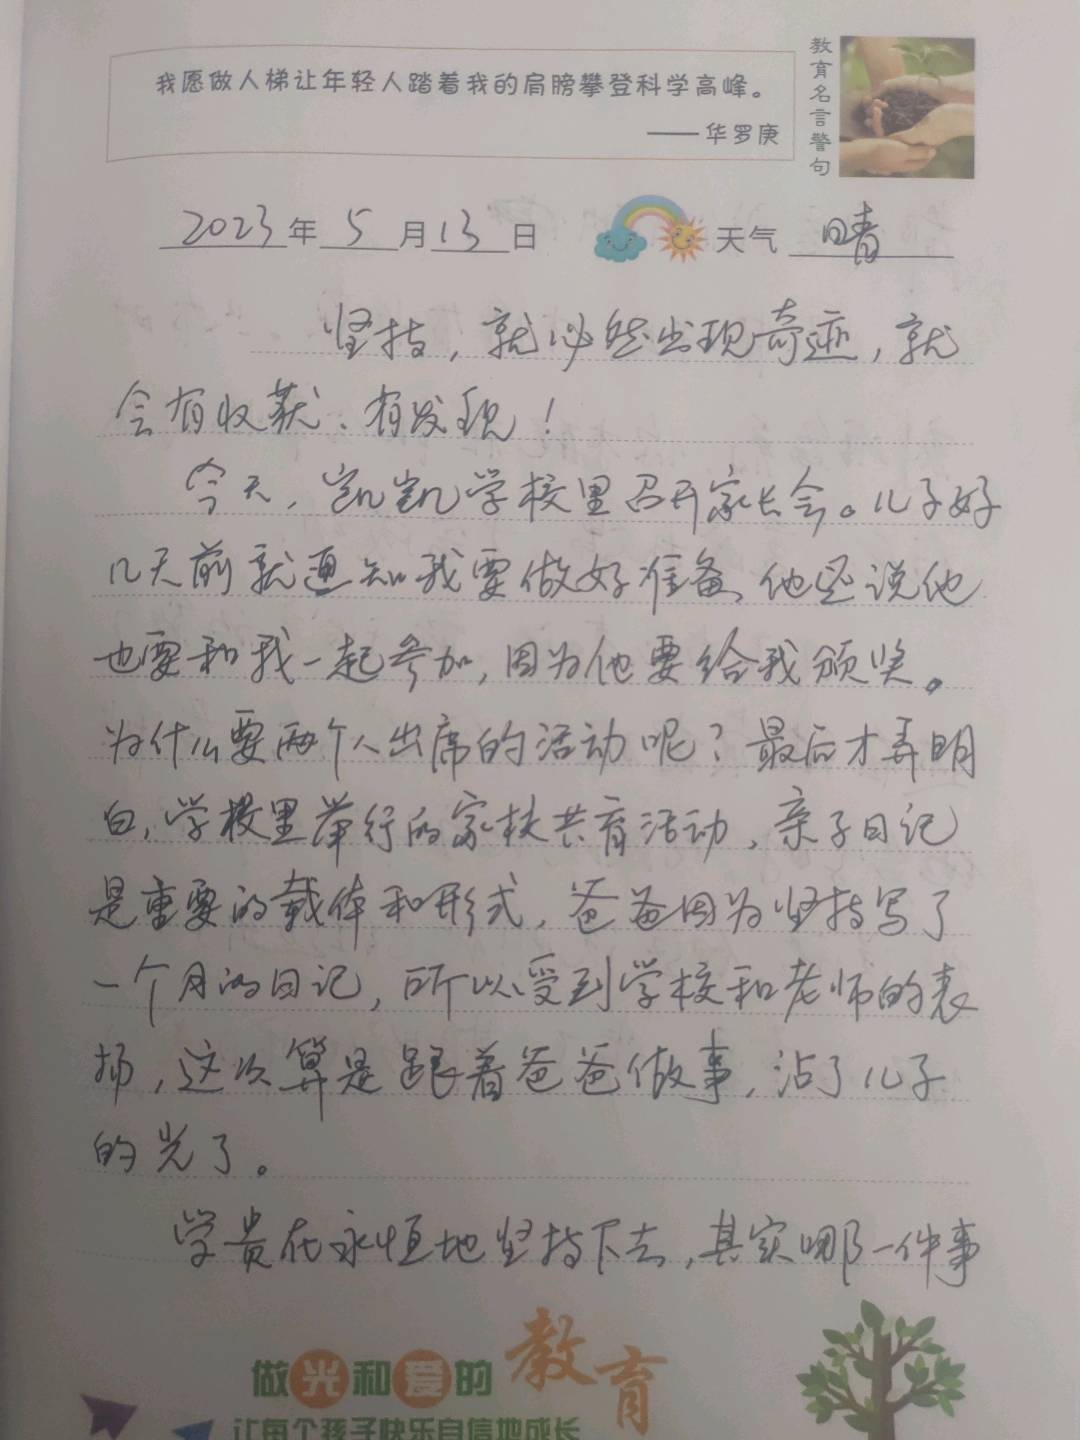 我愿做人梯让年轻人踏着我的肩膀攀登科学高峰。
——华罗庚
教育名言警句
2023年5月13日 天气 晴
坚持，就必然出现奇迹，就
会有收获、有发现！
今天，凯凯学校里召开家长会。儿子好
几天前就通知我要做好准备，他还说他
也要和我一起参加，因为他要给我颁奖。
为什么要两个人出席的活动呢？最后才弄明
白，学校里举行的家校共育活动，亲子日记
是重要的载体和形式，爸爸因为坚持写了
一个月的日记，所以受到学校和老师的表
扬，这次算是跟着爸爸做事，沾了儿子
的光了。
学贵在永恒地坚持下去，其实哪一件事
做光和爱的教育
让每个孩子快乐自信地成长